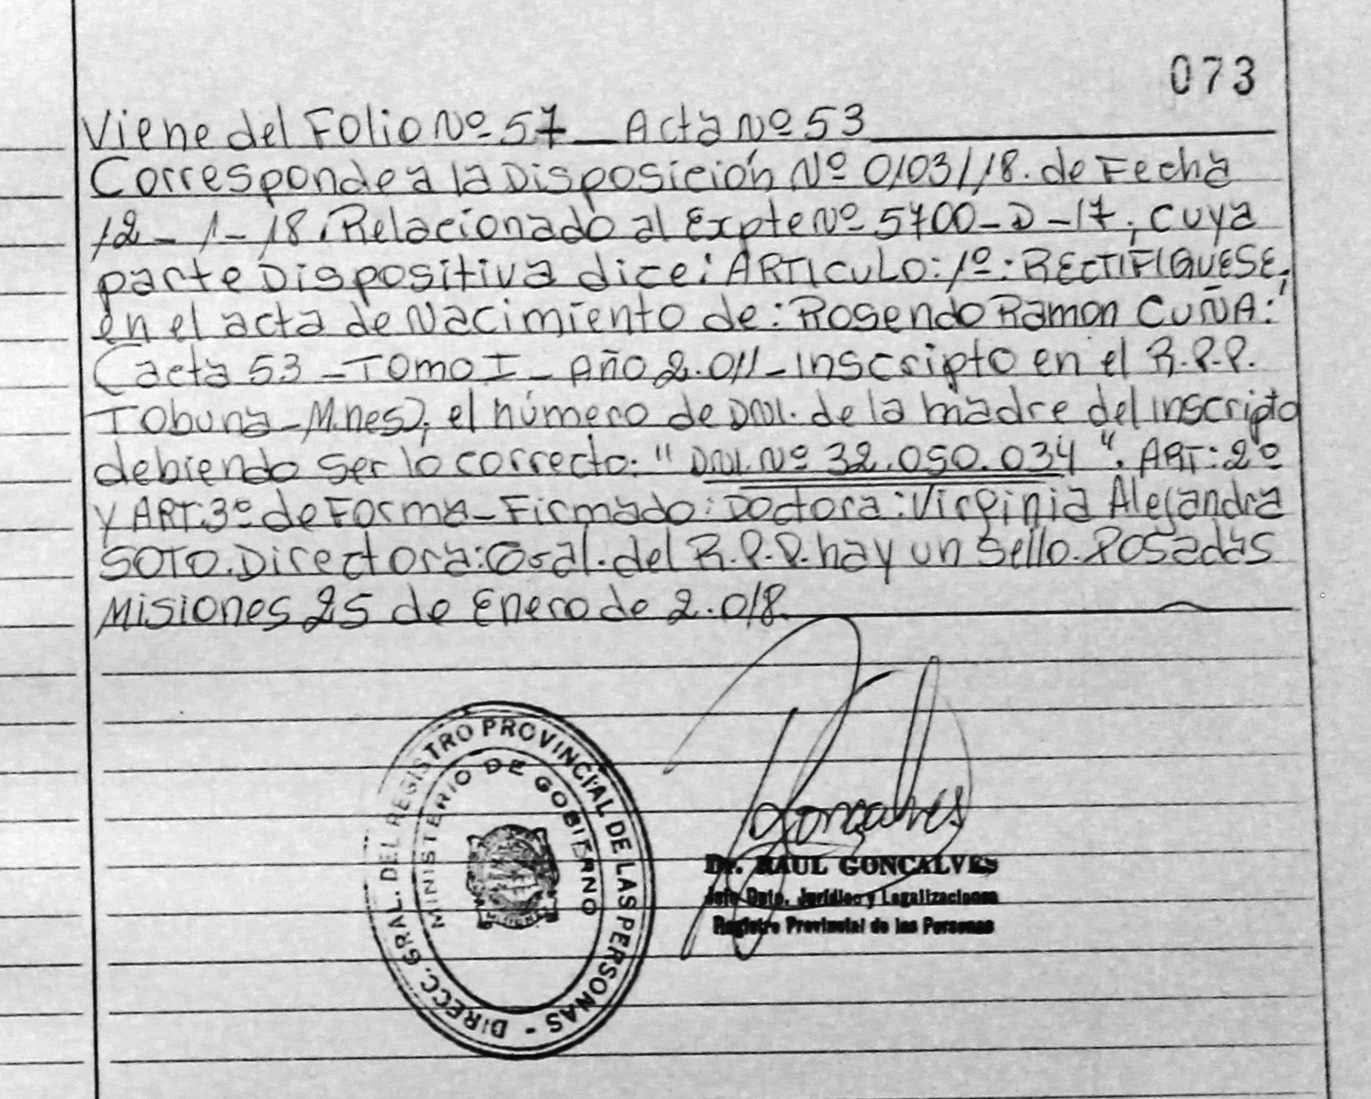 073
Viene del Folio Nº 57 _ Acta Nº 53
Corresponde a la Disposición Nº 0103/18. de Fecha
12 - 1 - 18. Relacionado al Expte Nº 5700 - D - 17, cuya
parte Dispositiva dice: ARTICULO: 1º: RECTIFIQUESE,
en el acta de Nacimiento de: Rosendo Ramon CUÑA:
(acta 53 - TOMO I - Año 2.011 - Inscripto en el R.P.P.
Tobuna - Mnes), el número de DNI. de la madre del inscripto
debiendo ser lo correcto: " DNI. Nº 32.050.034 ". ART: 2º
y ART. 3º de Forma - Firmado: Doctora: Virginia Alejandra
SOTO. Directora: Gral. del R.P.P. hay un Sello. Posadas
Misiones 25 de Enero de 2.018.
DIRECC. GRAL. DEL REGISTRO PROVINCIAL DE LAS PERSONAS -
MINISTERIO DE GOBIERNO
Goncalves
Dr. RAUL GONCALVES
Jefe Dpto. Jurídico y Legalizaciones
Registro Provincial de las Personas